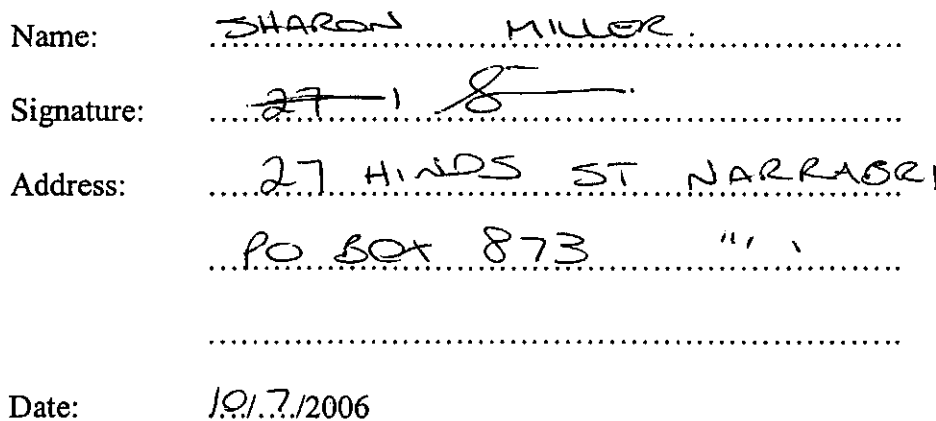 Name: SHARON MILLER.
Signature: 27
Address: 27 HINDS ST NARRABRI
PO BOX 873 " "
Date: 10/.7./2006